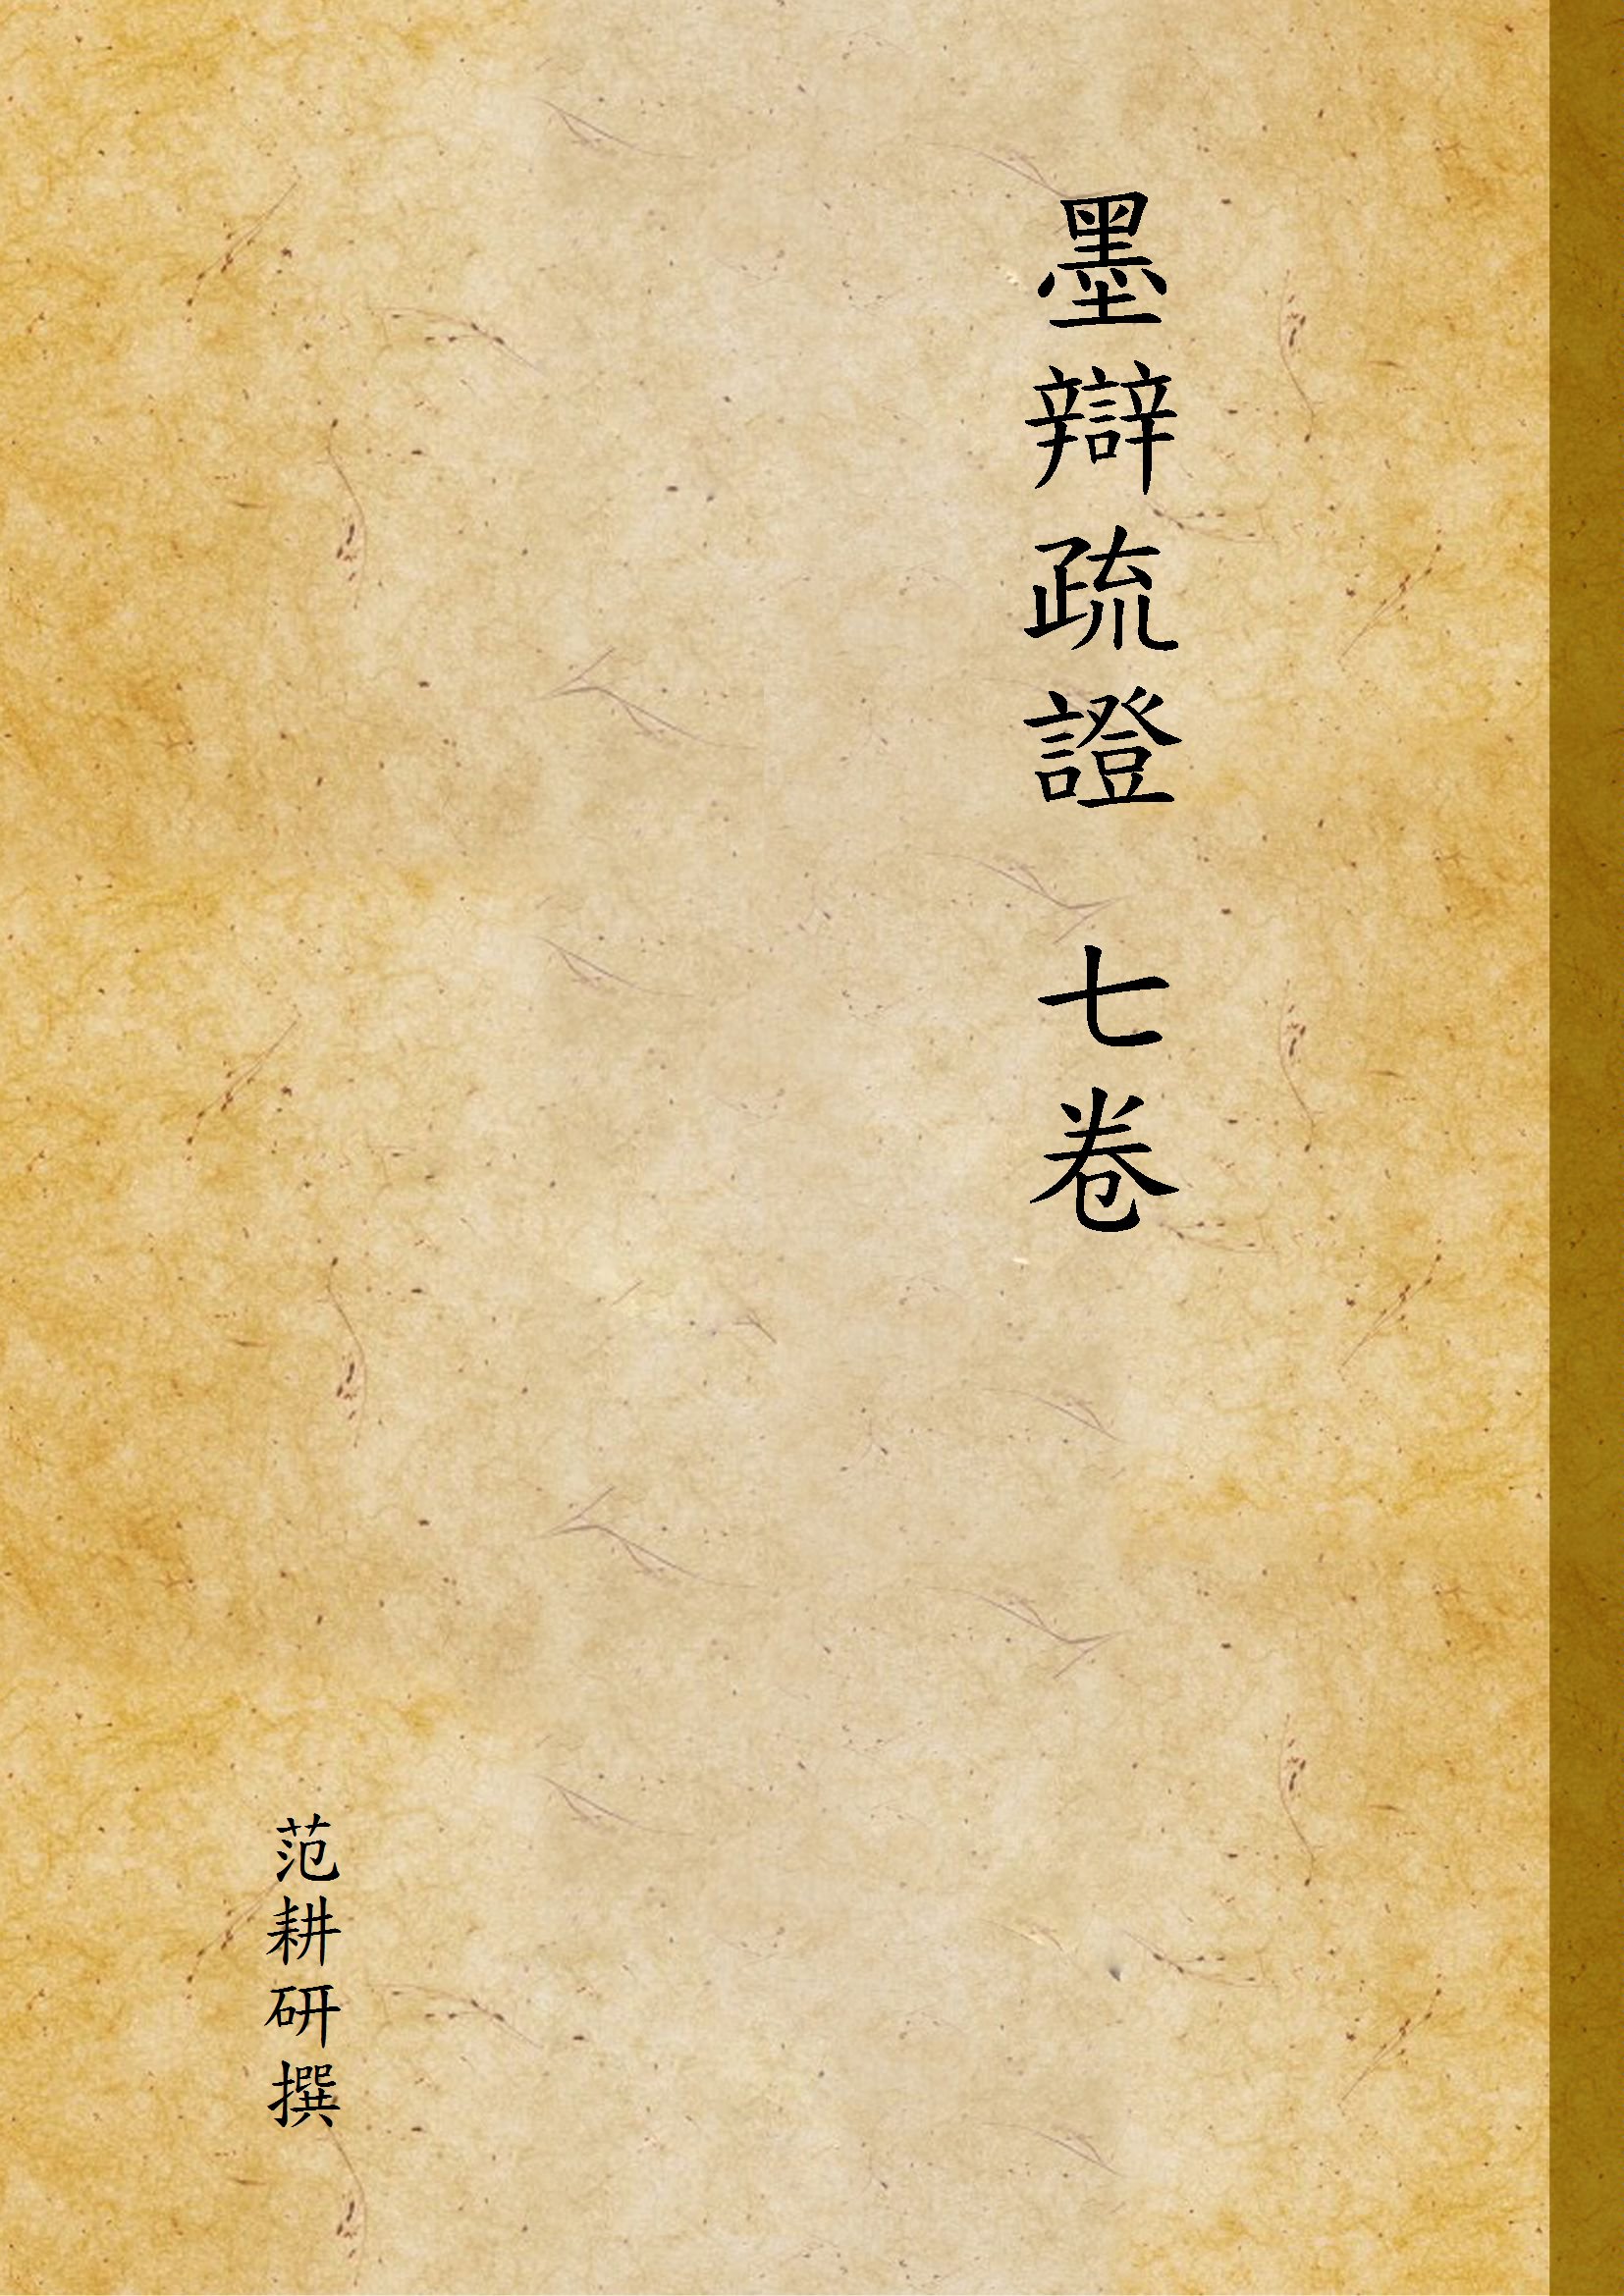 墨辯疏證 七卷
范耕研撰